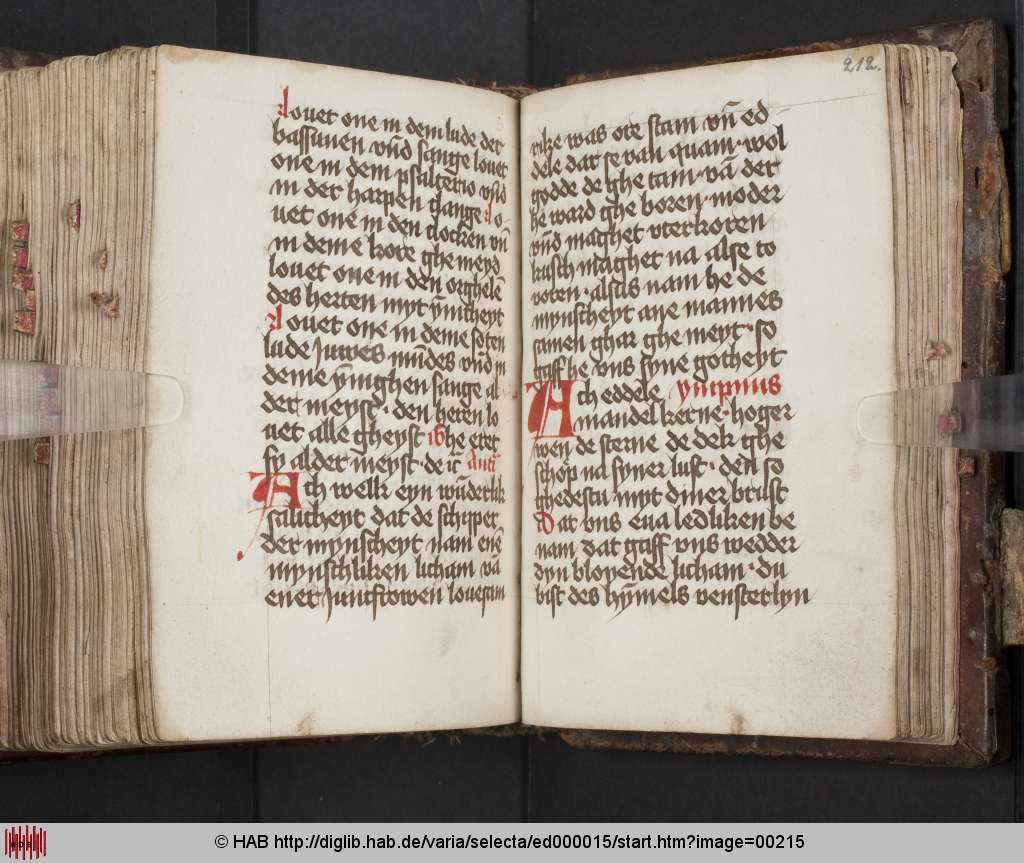 Louet one in dem lude der
bassunen vnd sange louet
one in dem psalterio vnd
in der harpen clange Lo-
uet one in den clocken vn̄
in deme kore ghe meyd
louet one in den orghelē
des herten myt ȳnicheyt
Louet one in deme soten
lude Juwes mūdes vnd in
deme ȳnighen sange al
der meyst · den heren lo
uet alle gheyst Ghe eret
sy alder meyst · de ic̄ Anti
Ach welk eyn wūderlik
salicheyt dat de schipper
der mynscheyt nam ene
mynschliken licham vā
ener Juncfrowen louesam
212.
rike was ore stam vn̄ ed-
dele dar se van quam · wol
godde de ghe tam · vā der
he ward ghe boren · moder
vnd maghet vterkoren
kusch maghet na alse to
voren · alsus nam he de
mynscheyt ane mannes
samen ghar ghe meyt · so
gaff he vns syne gotheyt
Ach eddele ympnus
mandel kerne · hoger
wen de sterne de dek ghe
schop na syner lust · den so
ghedestu myt diner brust
Dat vns eua ledliken be
nam dat gaff vns wedder
dyn bloyende licham · du
bist des hȳmels vensterlyn
© HAB http://diglib.hab.de/varia/selecta/ed000015/start.htm?image=00215